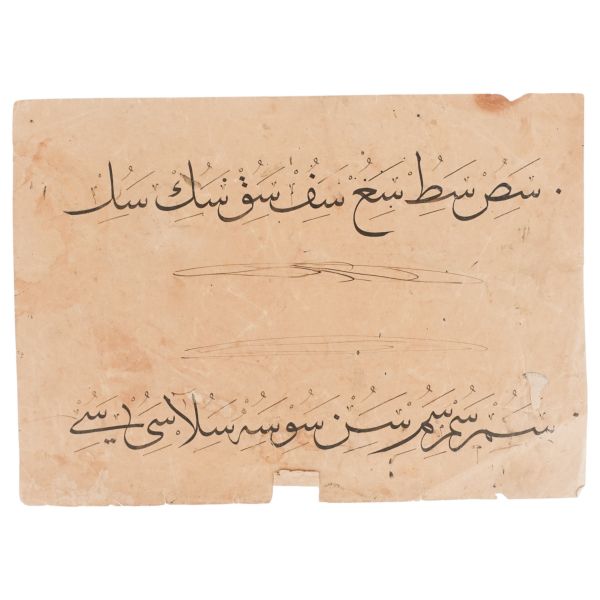 سص سط سع سف سق سك سل
سم سم سم سن سو سه سلا سى سے